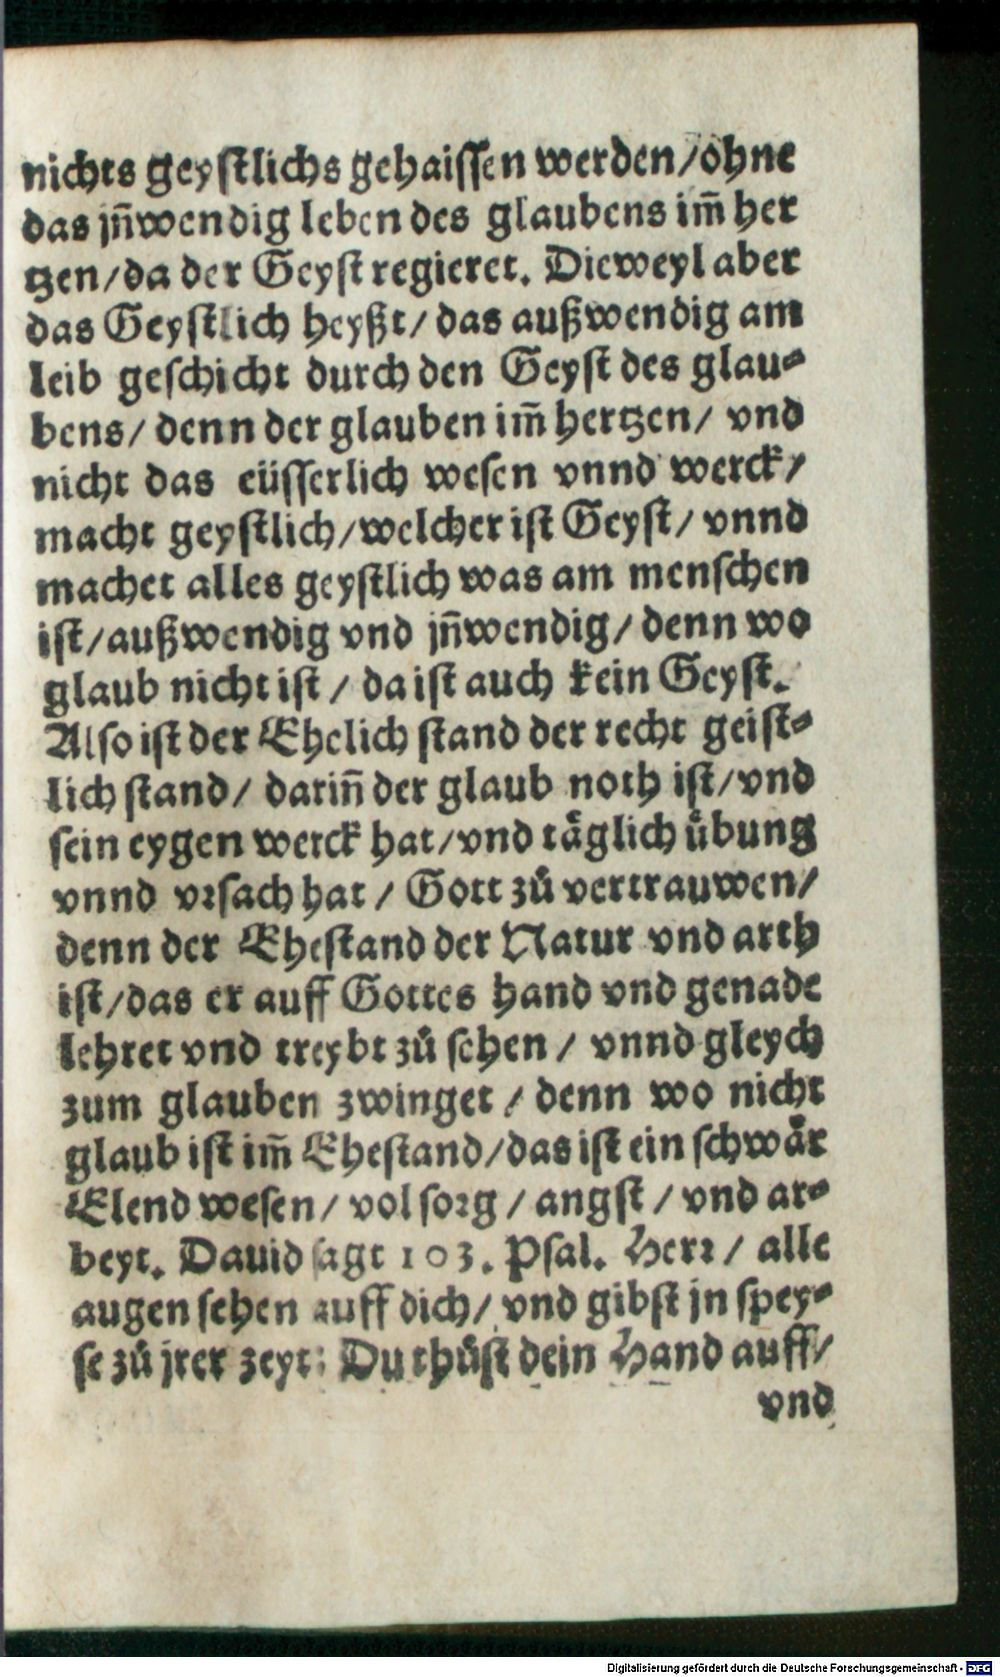 nichts geystlichs gehaissen werden/ohne
das jn̄wendig leben des glaubens im̄ her
tzen/da der Geyst regieret. Dieweyl aber
das Geystlich heyßt/das außwendig am
leib geschicht durch den Geyst des glau-
bens/denn der glauben im̄ hertzen/vnd
nicht das eüsserlich wesen vnnd werck/
macht geystlich/welcher ist Geyst/vnnd
machet alles geystlich was am menschen
ist/außwendig vnd jn̄wendig/denn wo
glaub nicht ist/da ist auch kein Geyst.
Also ist der Ehelich stand der recht geist-
lich stand/darin̄ der glaub noth ist/vnd
sein eygen werck hat/vnd taͤglich uͤbung
vnnd vrsach hat/Gott zuͦ vertrauwen/
denn der Ehestand der Natur vnd arth
ist/das er auff Gottes hand vnd genade
lehret vnd treybt zuͦ sehen/vnnd gleych
zum glauben zwinget/denn wo nicht
glaub ist im̄ Ehestand/das ist ein schwaͤr
Elend wesen/vol sorg/angst/vnd ar-
beyt. Dauid sagt 103. Psal. Herr/alle
augen sehen auff dich/vnd gibst jn spey-
se zuͦ jrer zeyt: Du thuͦst dein Hand auff/
vnd
Digitalisierung gefördert durch die Deutsche Forschungsgemeinschaft - DFG